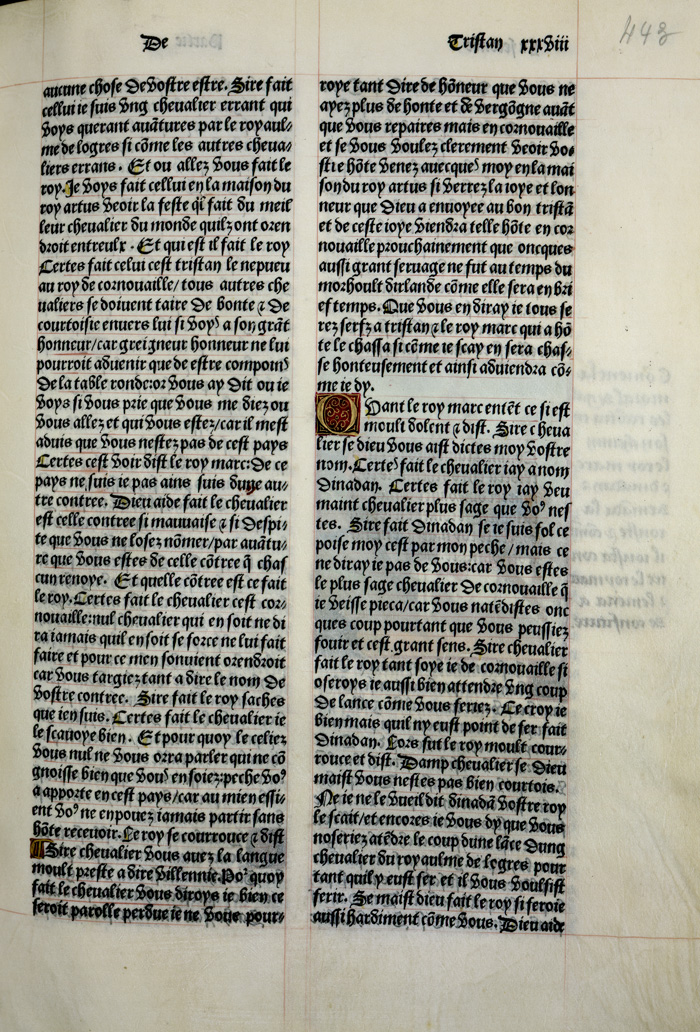 De
Tristan xxxviii
443
aucune chose De vostre estre. Sire fait
cellui ie suis vng cheualier errant qui
voys querant auãtures par le roy aul⸗
me de logres si cõme les autres cheua⸗
liers errans. Et ou allez vous fait le
roy. Je voys fait cellui en la maison du
roy artus veoir la feste qͥl font du meil
leur cheualier du monde quilz ont oren
droit entreulx. Et qui est il fait le roy
Certes fait celui cest tristan le nepueu
au roy de cornouaille/ tous autres che
ualiers se doiuent taire De bonte ⁊ De
courtoisie enuers lui si voyꝰ a son grãt
honneur/car greigneur honneur ne lui
pourroit aduenir que de estre compoinꝰ
De la table ronde:or vous ay Dit ou ie
voys si vous prie que vous me diez ou
vous allez et qui vous estez/car il mest
aduis que vous nestez pas de cest pays
Certes cest voir dist le roy marc:De ce
pays ne suis ie pas ains suis dune au⸗
tre contree. Dieu aide fait le cheualier
est celle contree si mauuaise ⁊ si Despi⸗
te que vous ne losez nõmer/par auãtu⸗
re que vous estes de celle cõtree q̃ chas
cun renoye. Et quelle cõtree est ce fait
le roy. Certes fait le cheualier cest cor⸗
nouaille:nul cheualier qui en soit ne di
ra iamais quil en soit se force ne lui fait
faire et pour ce men souuient orendroit
car vous targiez tant a dire le nom De
vostre contree. Sire fait le roy saches
que ien suis. Certes fait le cheualier ie
le scauoye bien. Et pour quoy le celiez
vous nul ne vous orra parler qui ne cõ
gnoisse bien que vouꝰ en soiez:peche voꝰ
a apporte en cest pays/car au mien essi⸗
ent voꝰ ne en pouez iamais partir sans
hõte receuoir. Le roy se courrouce ⁊ dist
Sire cheualier vous auez la langue
moult preste a dire villennie. Poꝰ quoy
fait le cheualier vous diroys ie bien ce
seroit parolle perdue ie ne vous pour⸗
roye tant Dire de hõneur que vous ne
ayez plus de honte et de vergõgne auãt
que vous repaires mais en cornouaille
et se vous voulez clerement veoir vo⸗
stre hõte venez auecqueꝰ moy en la mai
son du roy artus si verrez la ioye et lon
neur que Dieu a enuoyee au bon tristã
et de ceste ioye viendra telle hõte en cor
nouaille prouchainement que oncques
aussi grant seruage ne fut au temps du
morhoult dirlande cõme elle sera en bri
ef temps. Que vous en diray ie tous se
rez serfz a tristan ⁊ le roy marc qui a hõ
te le chassa si cõme ie scay en sera chas⸗
se honteusement et ainsi aduiendra cõ⸗
me ie dy.
Quant le roy marc entẽt ce si est
moult dolent ⁊ dist. Sire cheua
lier se dieu vous aist dictes moy vostre
nom. Certeꝰ fait le cheualier iay a nom
Dinadan. Certes fait le roy iay veu
maint cheualier plus sage que voꝰ nes
tes. Sire fait Dinadan se ie suis fol ce
poise moy cest par mon peche/ mais ce
ne diray ie pas de vous:car vous estes
le plus sage cheualier De cornouaille q̃
ie veisse pieca/car vous natẽdistes onc
ques coup pourtant que vous peussiez
fouir et cest grant sens. Sire cheualier
fait le roy tant soye ie de cornouaille si
oseroys ie aussi bien attendre vng coup
De lance cõme vous feriez. Ce croy ie
bien mais quil ny eust point de fer fait
Dinadan. Lors fut le roy moult cour⸗
rouce et dist. Damp cheualier se Dieu
maist vous nestes pas bien courtois.
Ne ie ne le vueil dit dinadã vostre roy
le scait/et encores ie vous dy que vous
noseriez atẽdre le coup dune lãce Dung
cheualier du royaulme de logres pour
tant quil y eust fer et il vous voulsist
ferir. Se maist dieu fait le roy si feroie
aussi hardiment cõme vous. Dieu aide